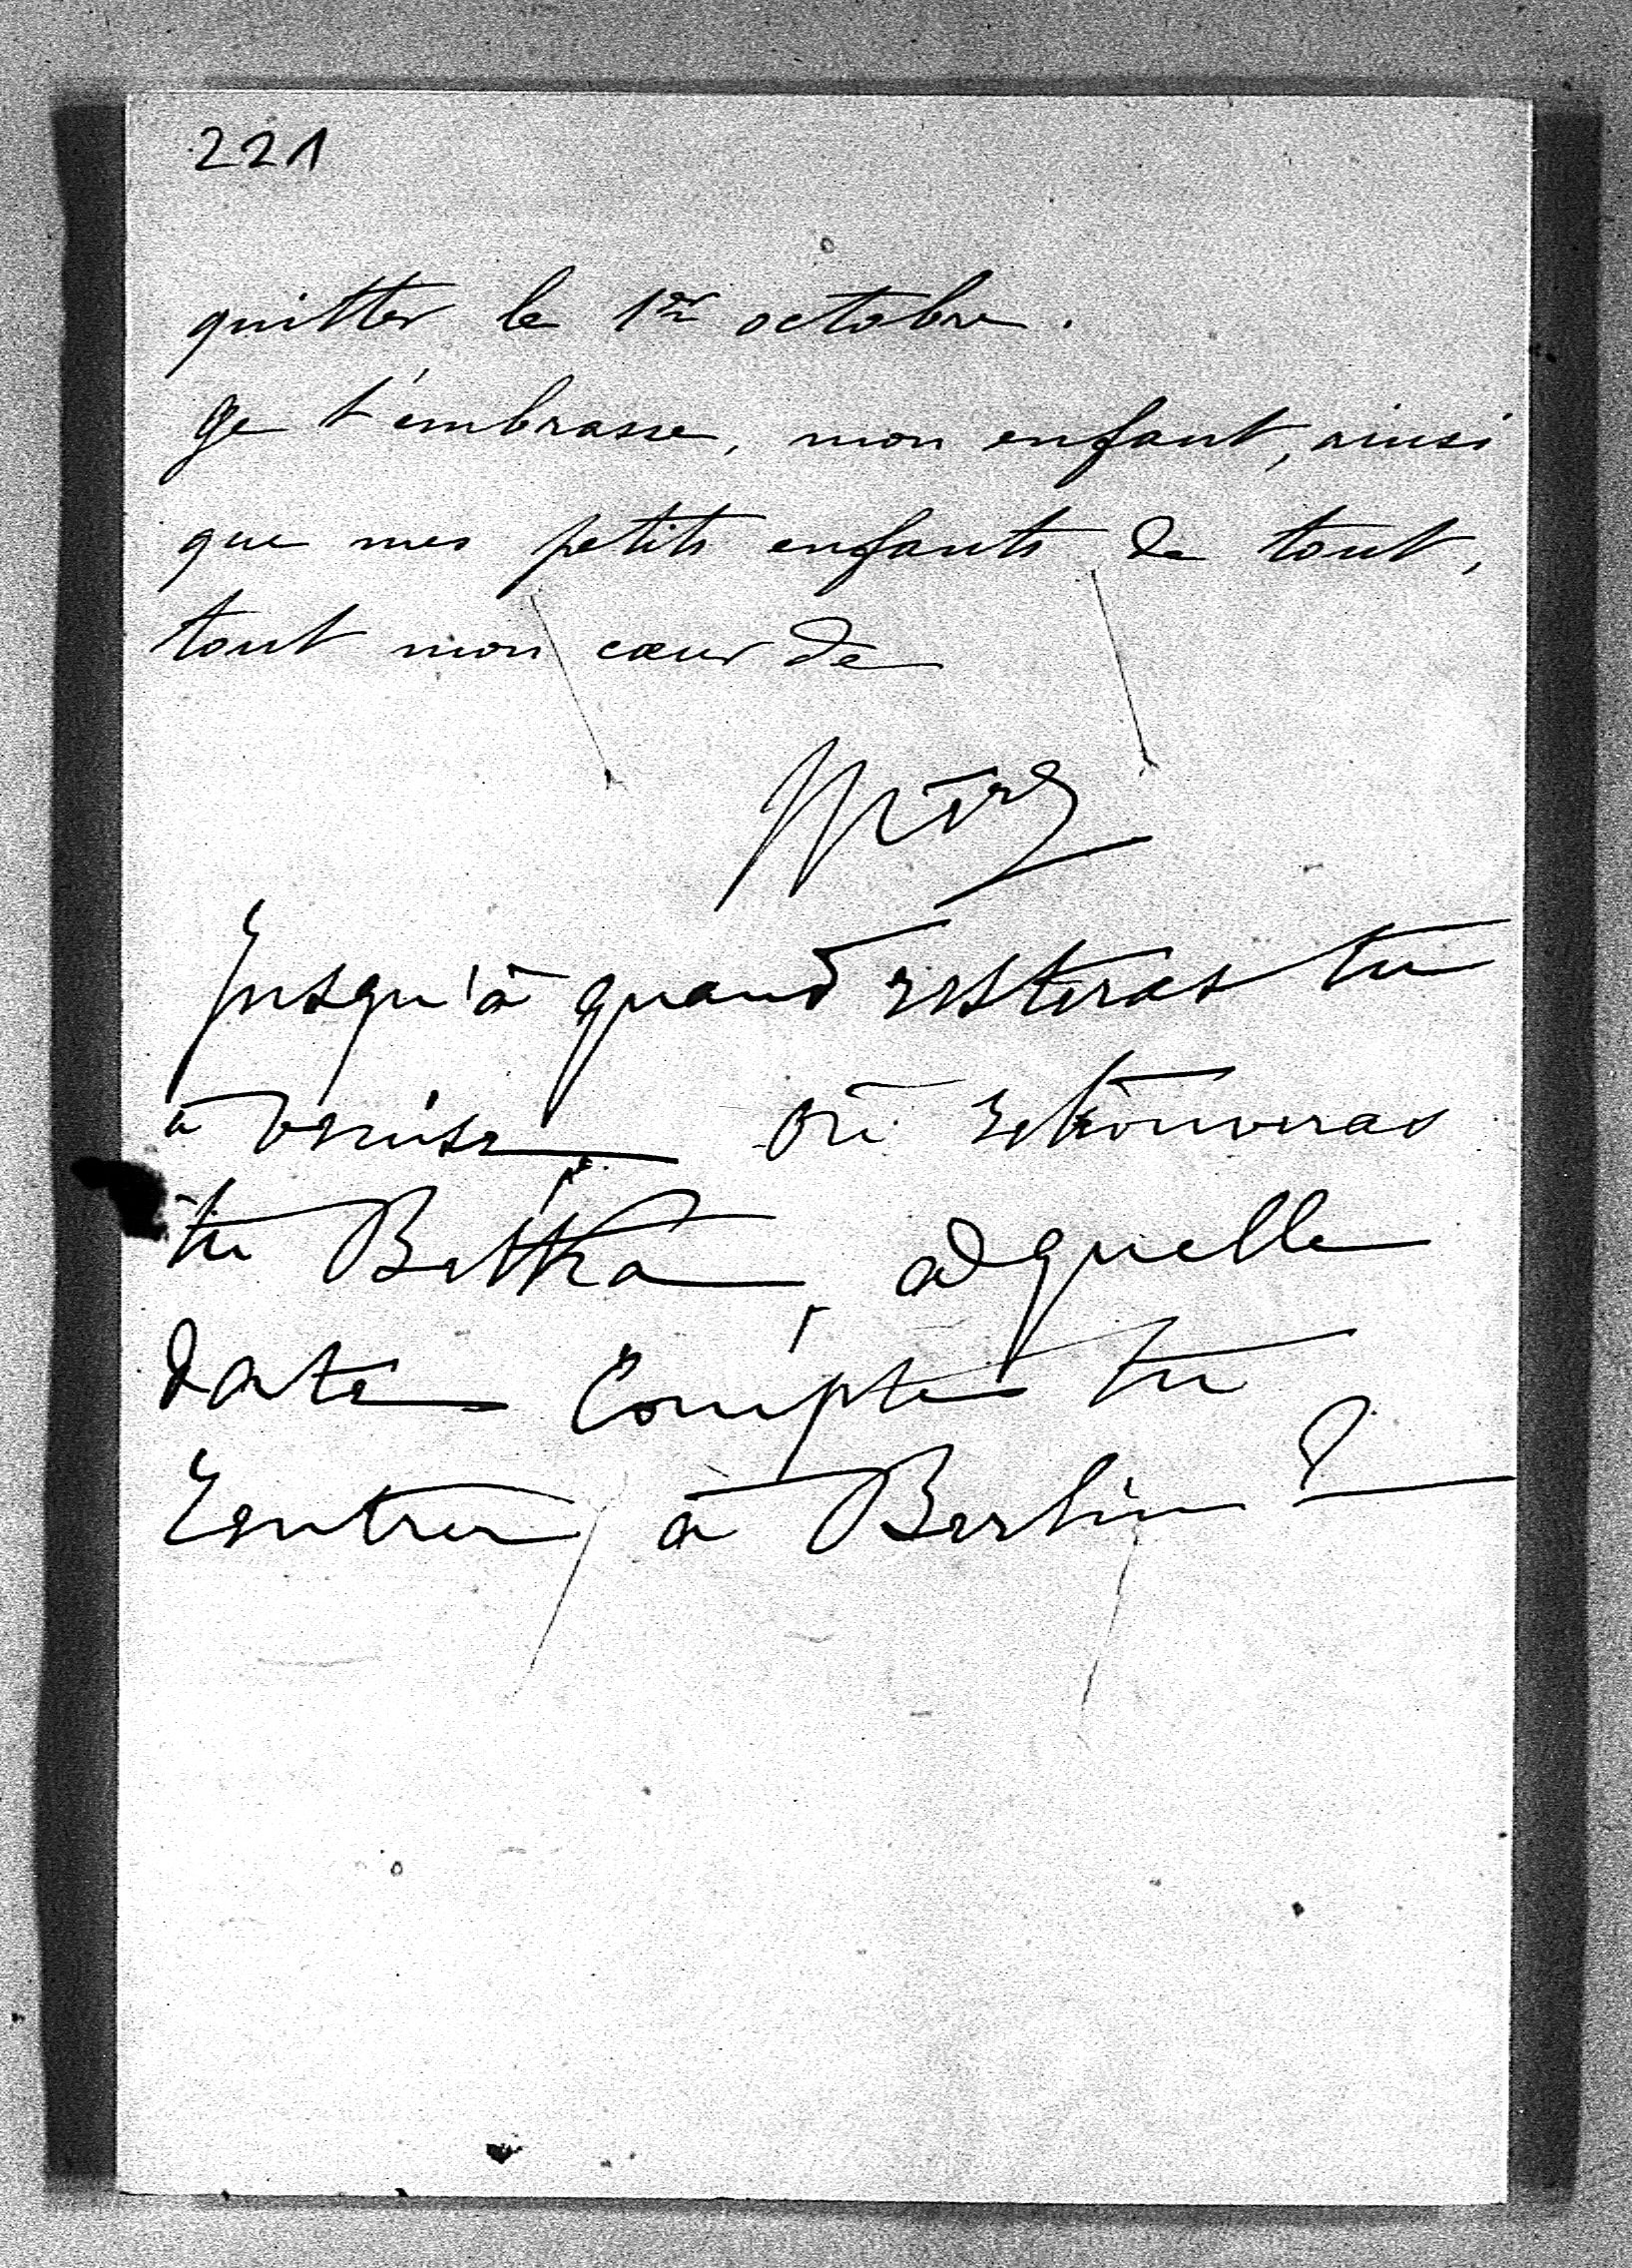 221
quitter le 1er octobre.
Je t'embrasse, mon enfant, ainsi
que mes petits enfants de tout,
tout mon cœur de
Mère
Jusqu'à quand resteras tu
à Venise, où retrouveras
tu Betka, à quelle
date comptes tu
rentrer à Berlin ?